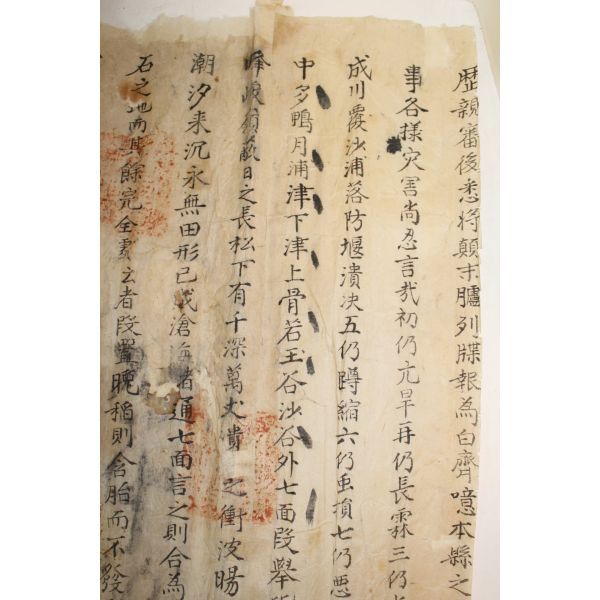 歷親審後悉將顛末臚列牒報為白齊噫本縣之
事各樣灾害尚忍言哉初仍亢旱再仍長霖三仍
成川覆沙浦落防堰潰决五仍蹲縮六仍虫損七仍悪
中多鴨月浦津下津上骨若玉谷沙谷外七面段舉
峰峻嶺蔽日之長松下有千深萬丈 之衝波暘
潮汐来沉永無田形已成滄 者通七面言之則合為
石之地而其餘完全 云者段置晚稻則含胎而不發